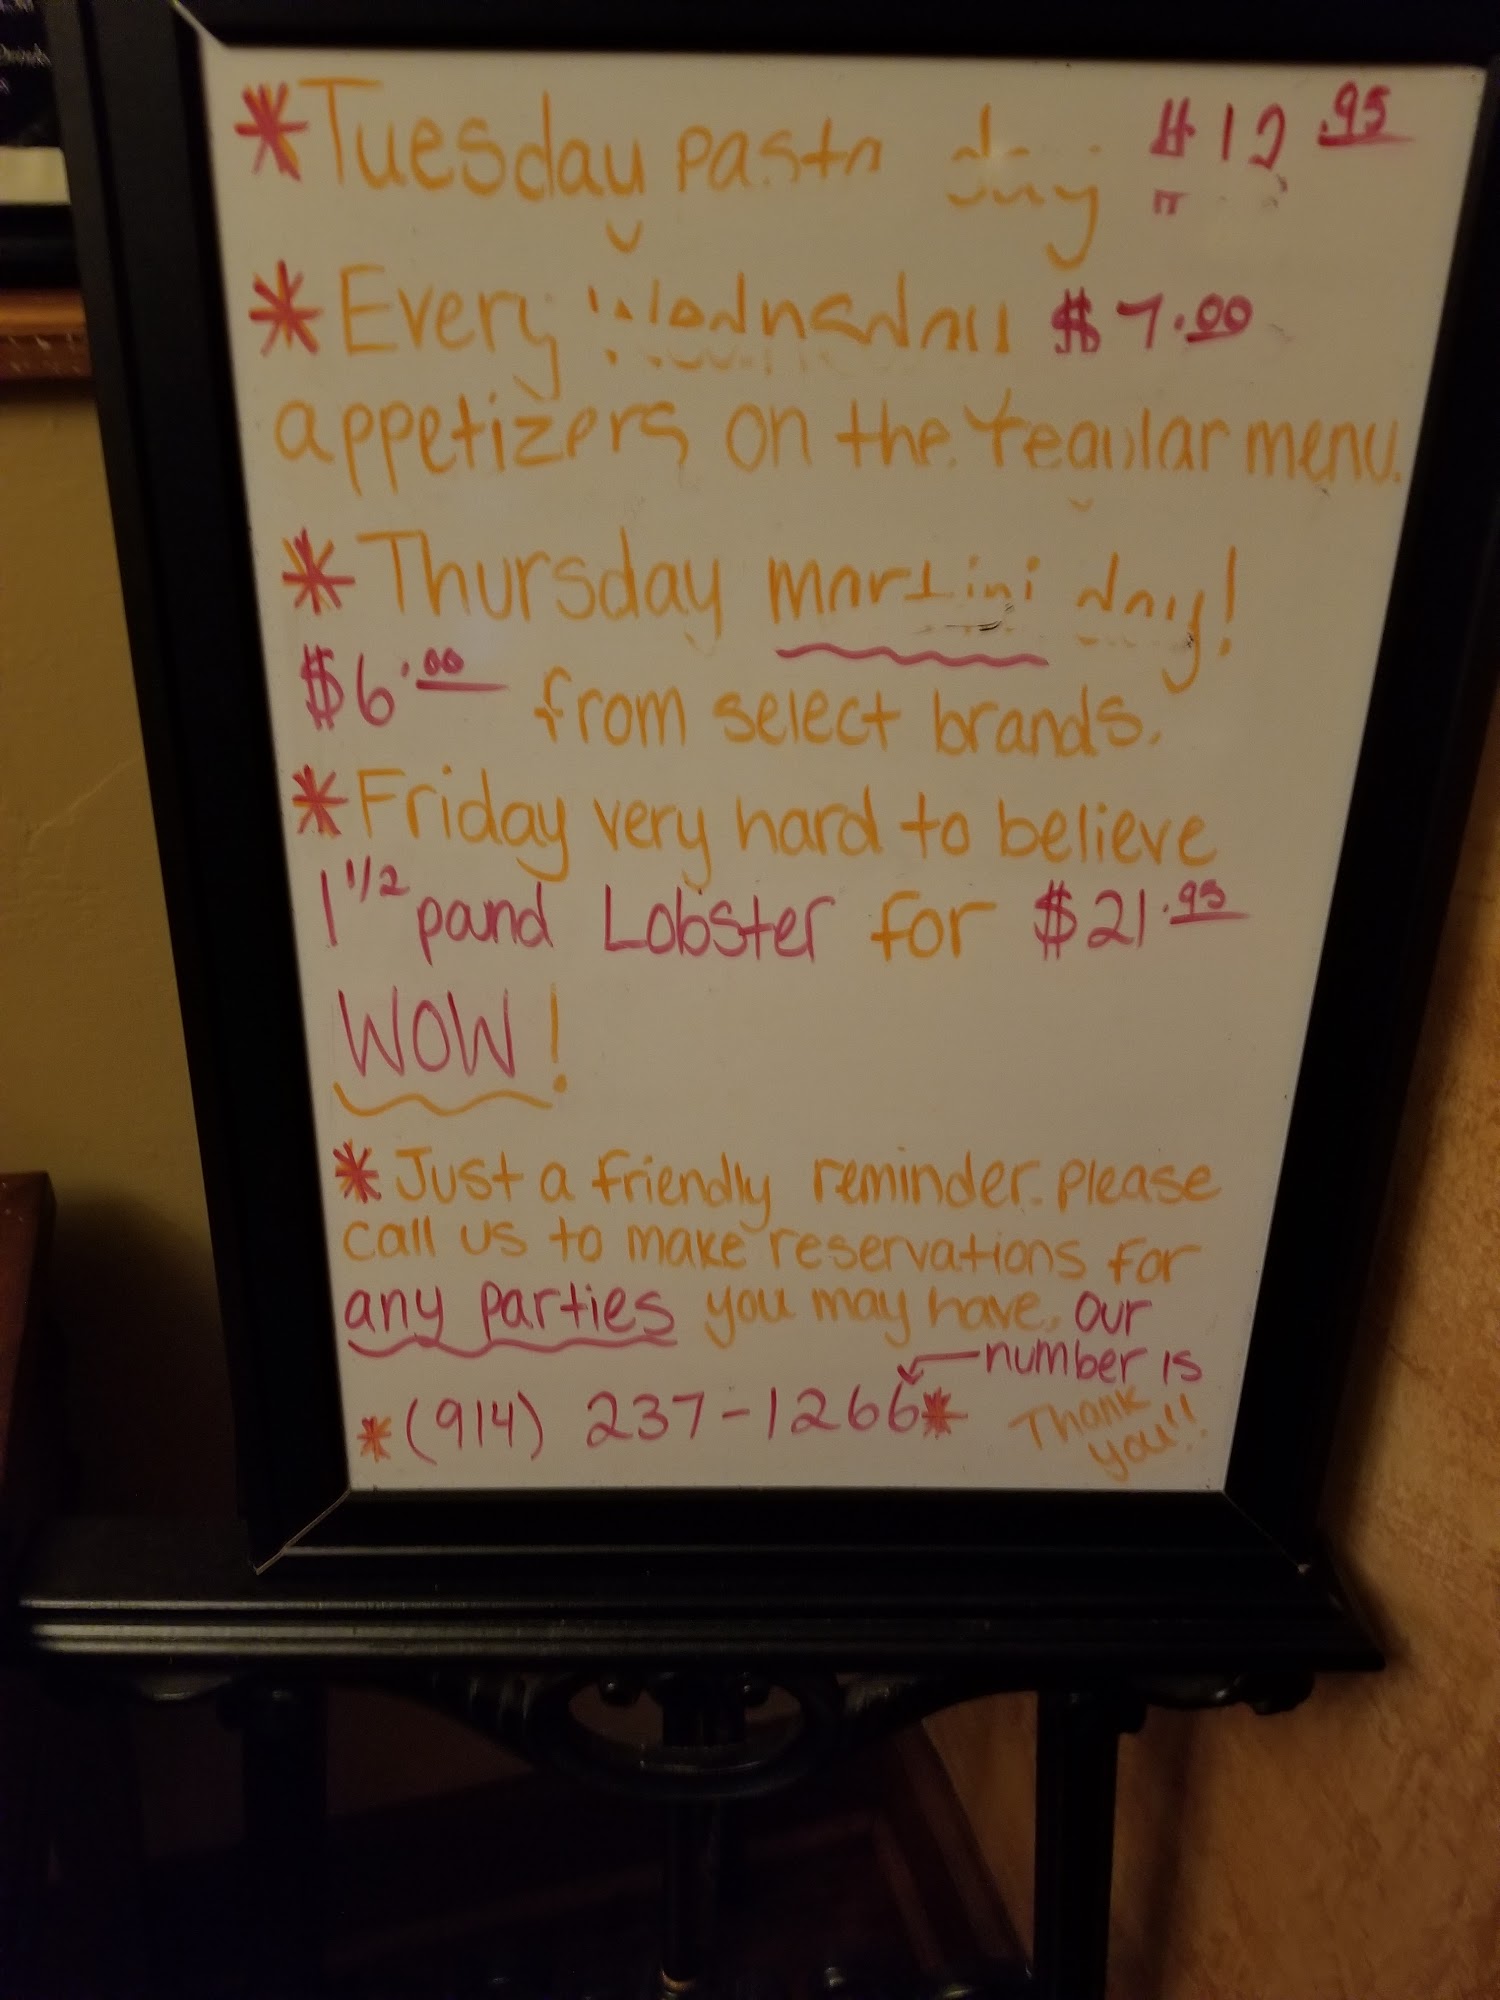 *Tuesday pasta day $12.95
*Every Wednesday $7.00
appetizers on the regular menu.
*Thursday martini day!
$6.00 from select brands.
*Friday very hard to believe
1 1/2 pound Lobster for $21.95
WOW!
*Just a friendly reminder. Please
call us to make reservations for
any parties you may have. Our
number is
*(914) 237-1266*
Thank
you!!